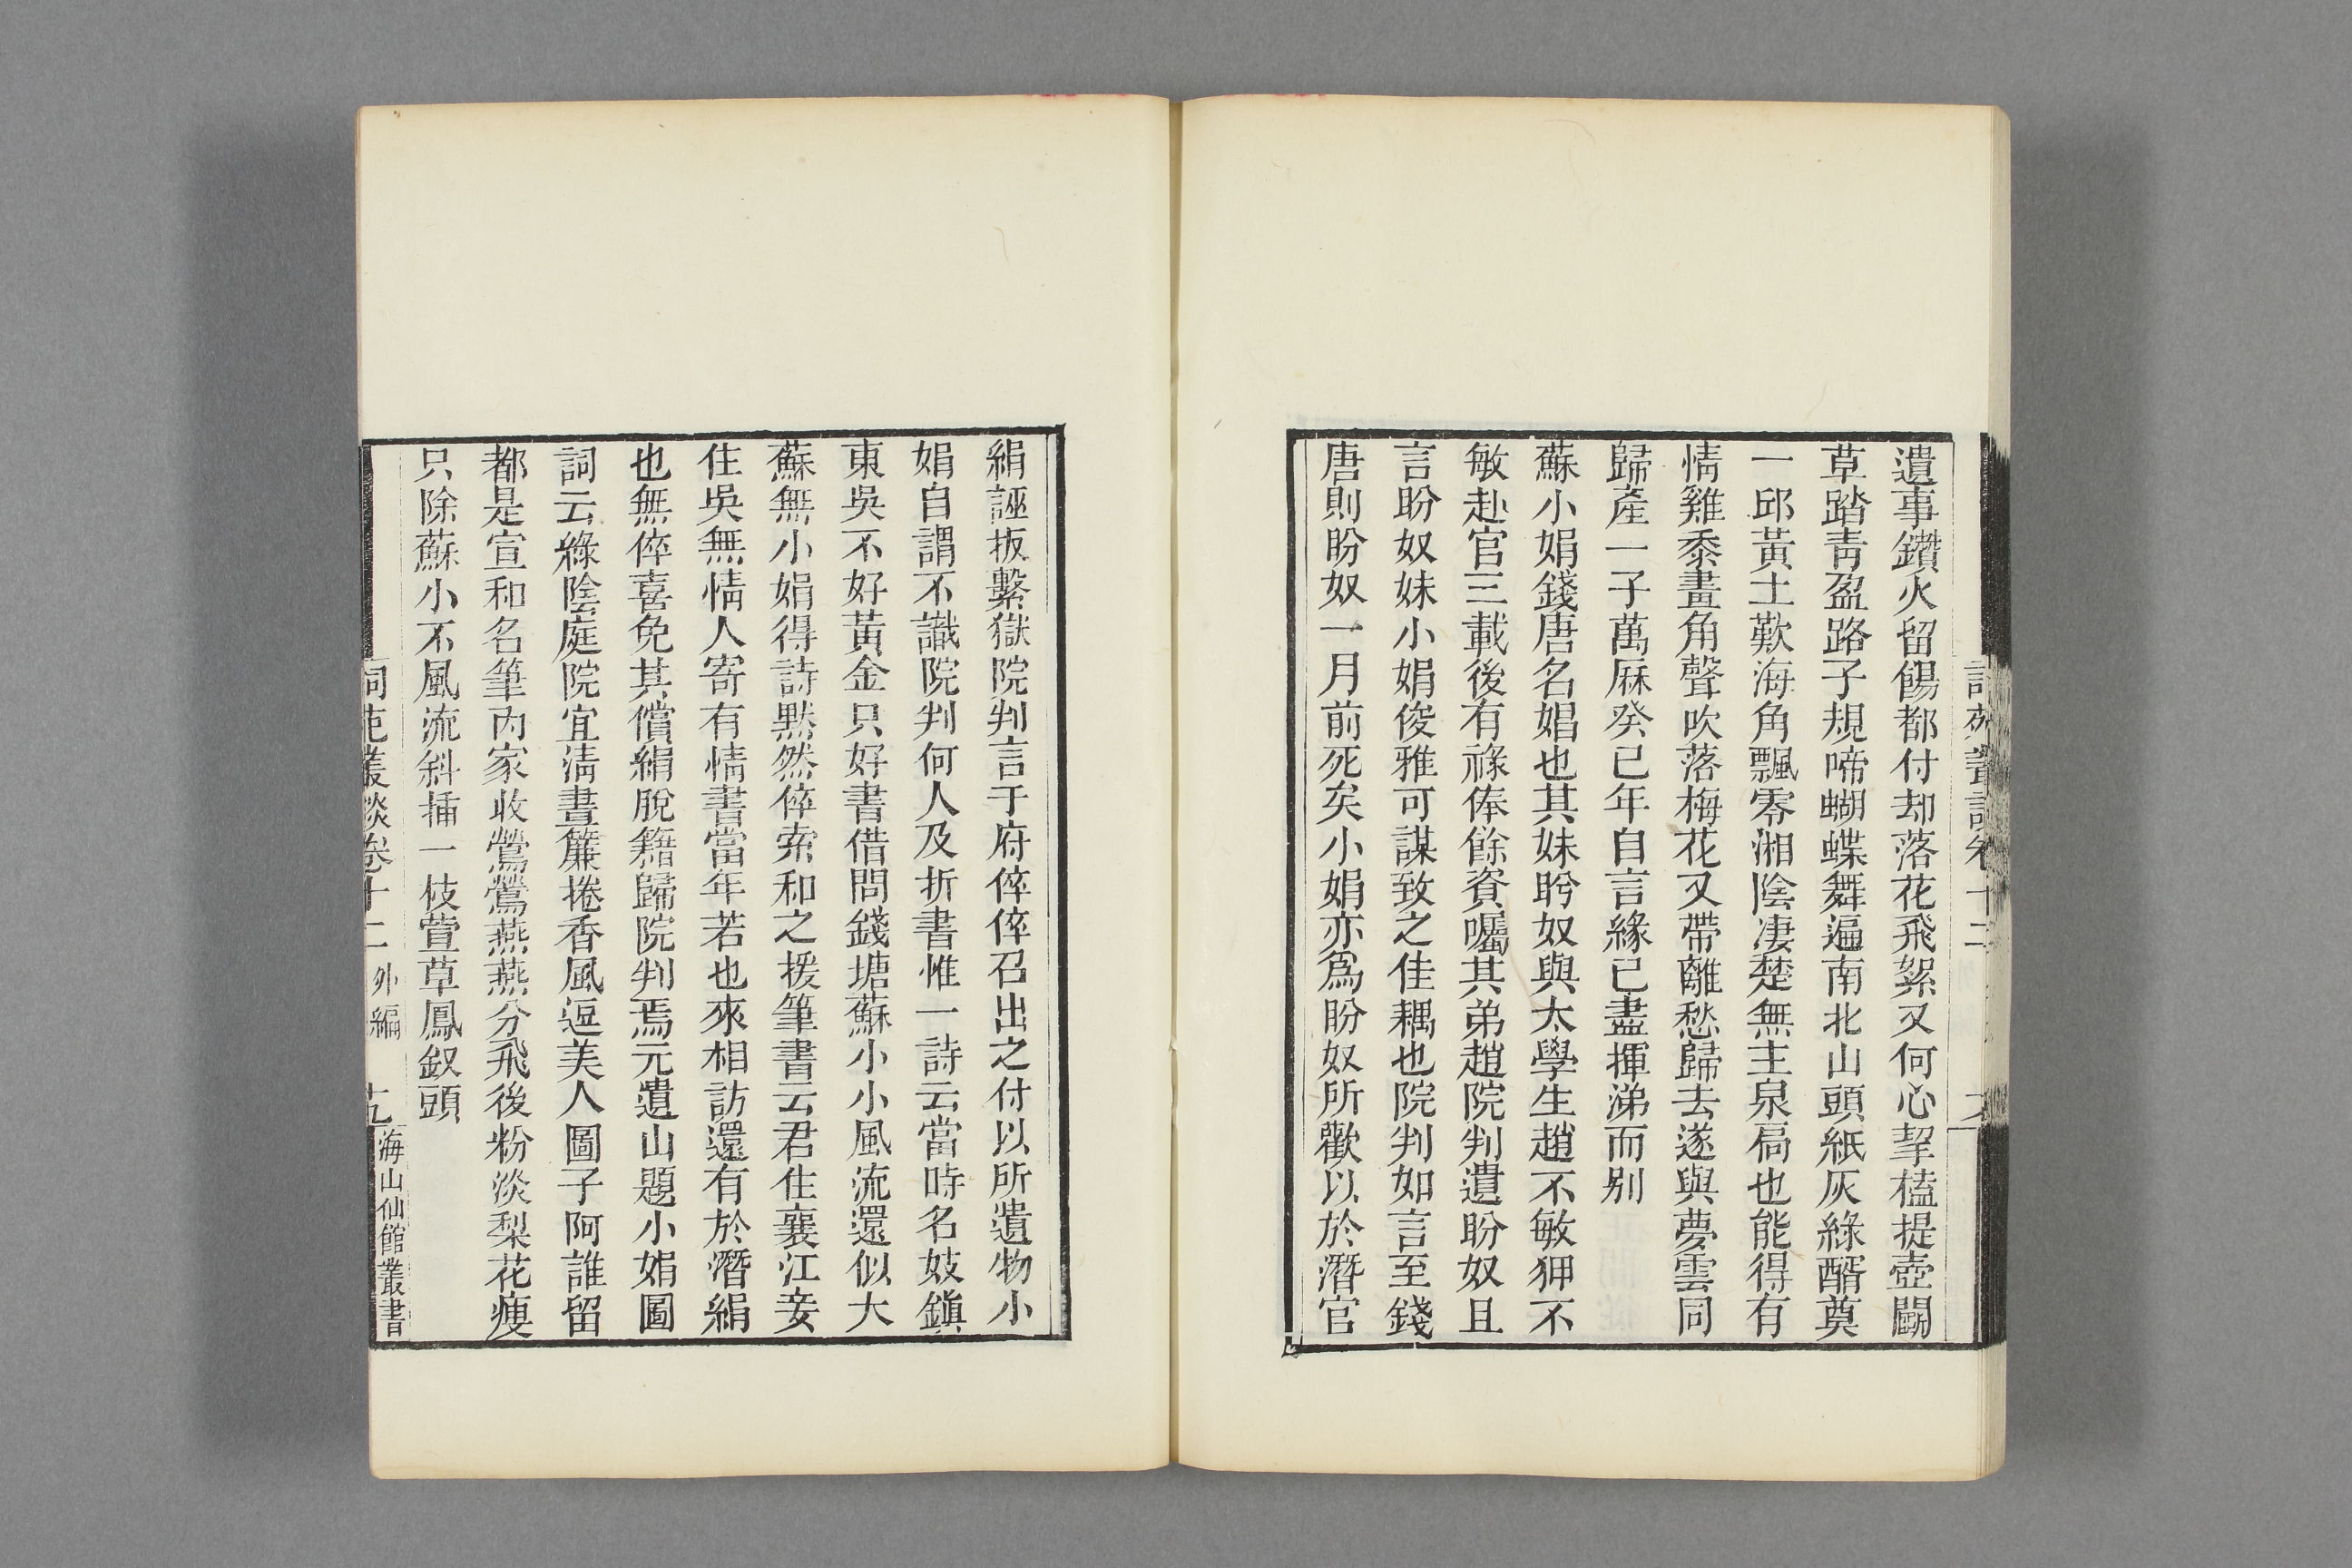 遺事鑽火留餳都付却落花飛絮又何心挈榼提壺鬭
草踏青盈路子規啼蝴蝶舞遍南北山頭紙灰綠醑奠
一邱黃土歎海角飄零湘陰凄楚無主泉扃也能得有
情雞黍畫角聲吹落梅花又帶離愁歸去遂與夢雲同
歸產一子萬厤癸巳年自言緣已盡揮涕而別
蘇小娟錢唐名娼也其妹盻奴與太學生趙不敏狎不
敏赴官三載後有祿俸餘資囑其弟趙院判遺盼奴且
言盼奴妹小娟俊雅可謀致之佳耦也院判如言至錢
唐則盼奴一月前死矣小娟亦爲盼奴所歡以於潛官
絹誣扳繫獄院判言于府倅倅召出之付以所遺物小
娟自謂不識院判何人及折書惟一詩云當時名妓鎭
東吳不好黃金只好書借問錢塘蘇小小風流還似大
蘇無小娟得詩默然倅索和之援筆書云君住襄江妾
住吳無情人寄有情書當年若也來相訪還有於潛絹
也無倅喜免其償絹脫籍歸院判焉元遺山題小娟圖
詞云綠陰庭院宜淸晝簾捲香風逗美人圖子阿誰留
都是宣和名筆內家收鶯鶯燕燕分飛後粉淡梨花瘦
只除蘇小不風流斜揷一枝萱草鳳釵頭
詞苑叢談卷十二 外編 十九 海山仙館叢書